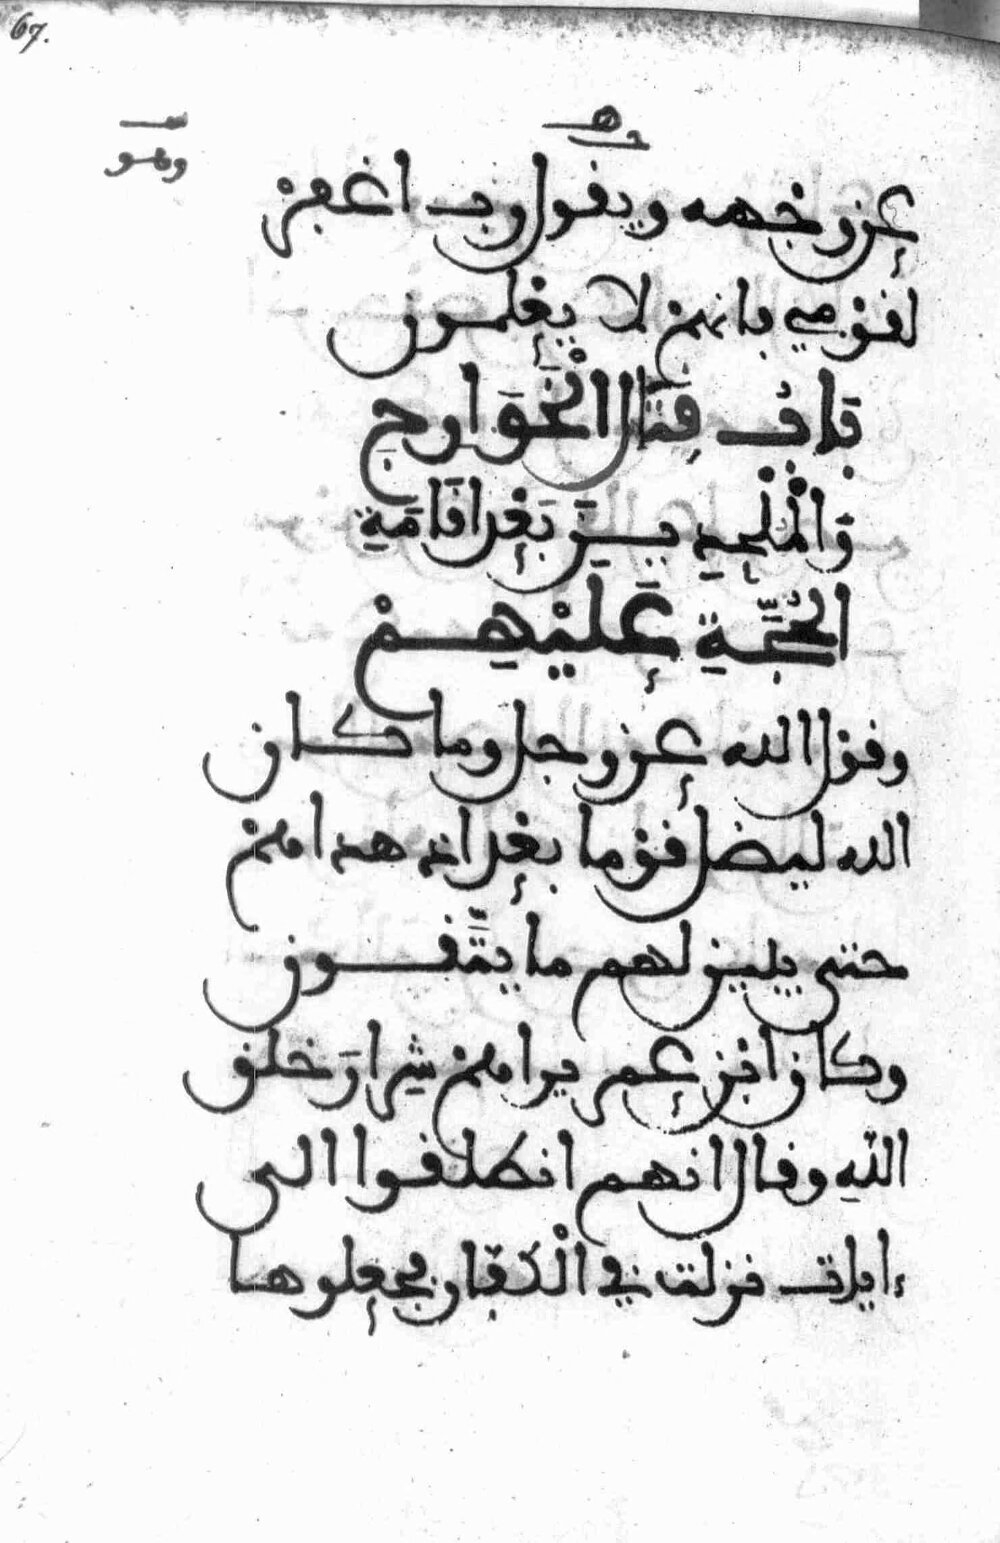 67.
وهو
عن وجهه ويقول رب اغفر
لقومي فانهم لا يعلمون
بَابُ قِتَالِ الْخَوَارِجِ
وَالْمُلْحِدِينَ بَعْدَ اقَامَةِ
الحُجَّةِ عَلَيْهِمْ
وقول الله عز وجل وما كان
الله ليضل قوما بعد اذ هداهم
حتى يبين لهم ما يتَّقون
وكان ابن عمر يراهم شِرارَ خلق
اللهِ وقال انهم انطلقوا الى
ءايات نزلت في الْكفّار فجعلوها